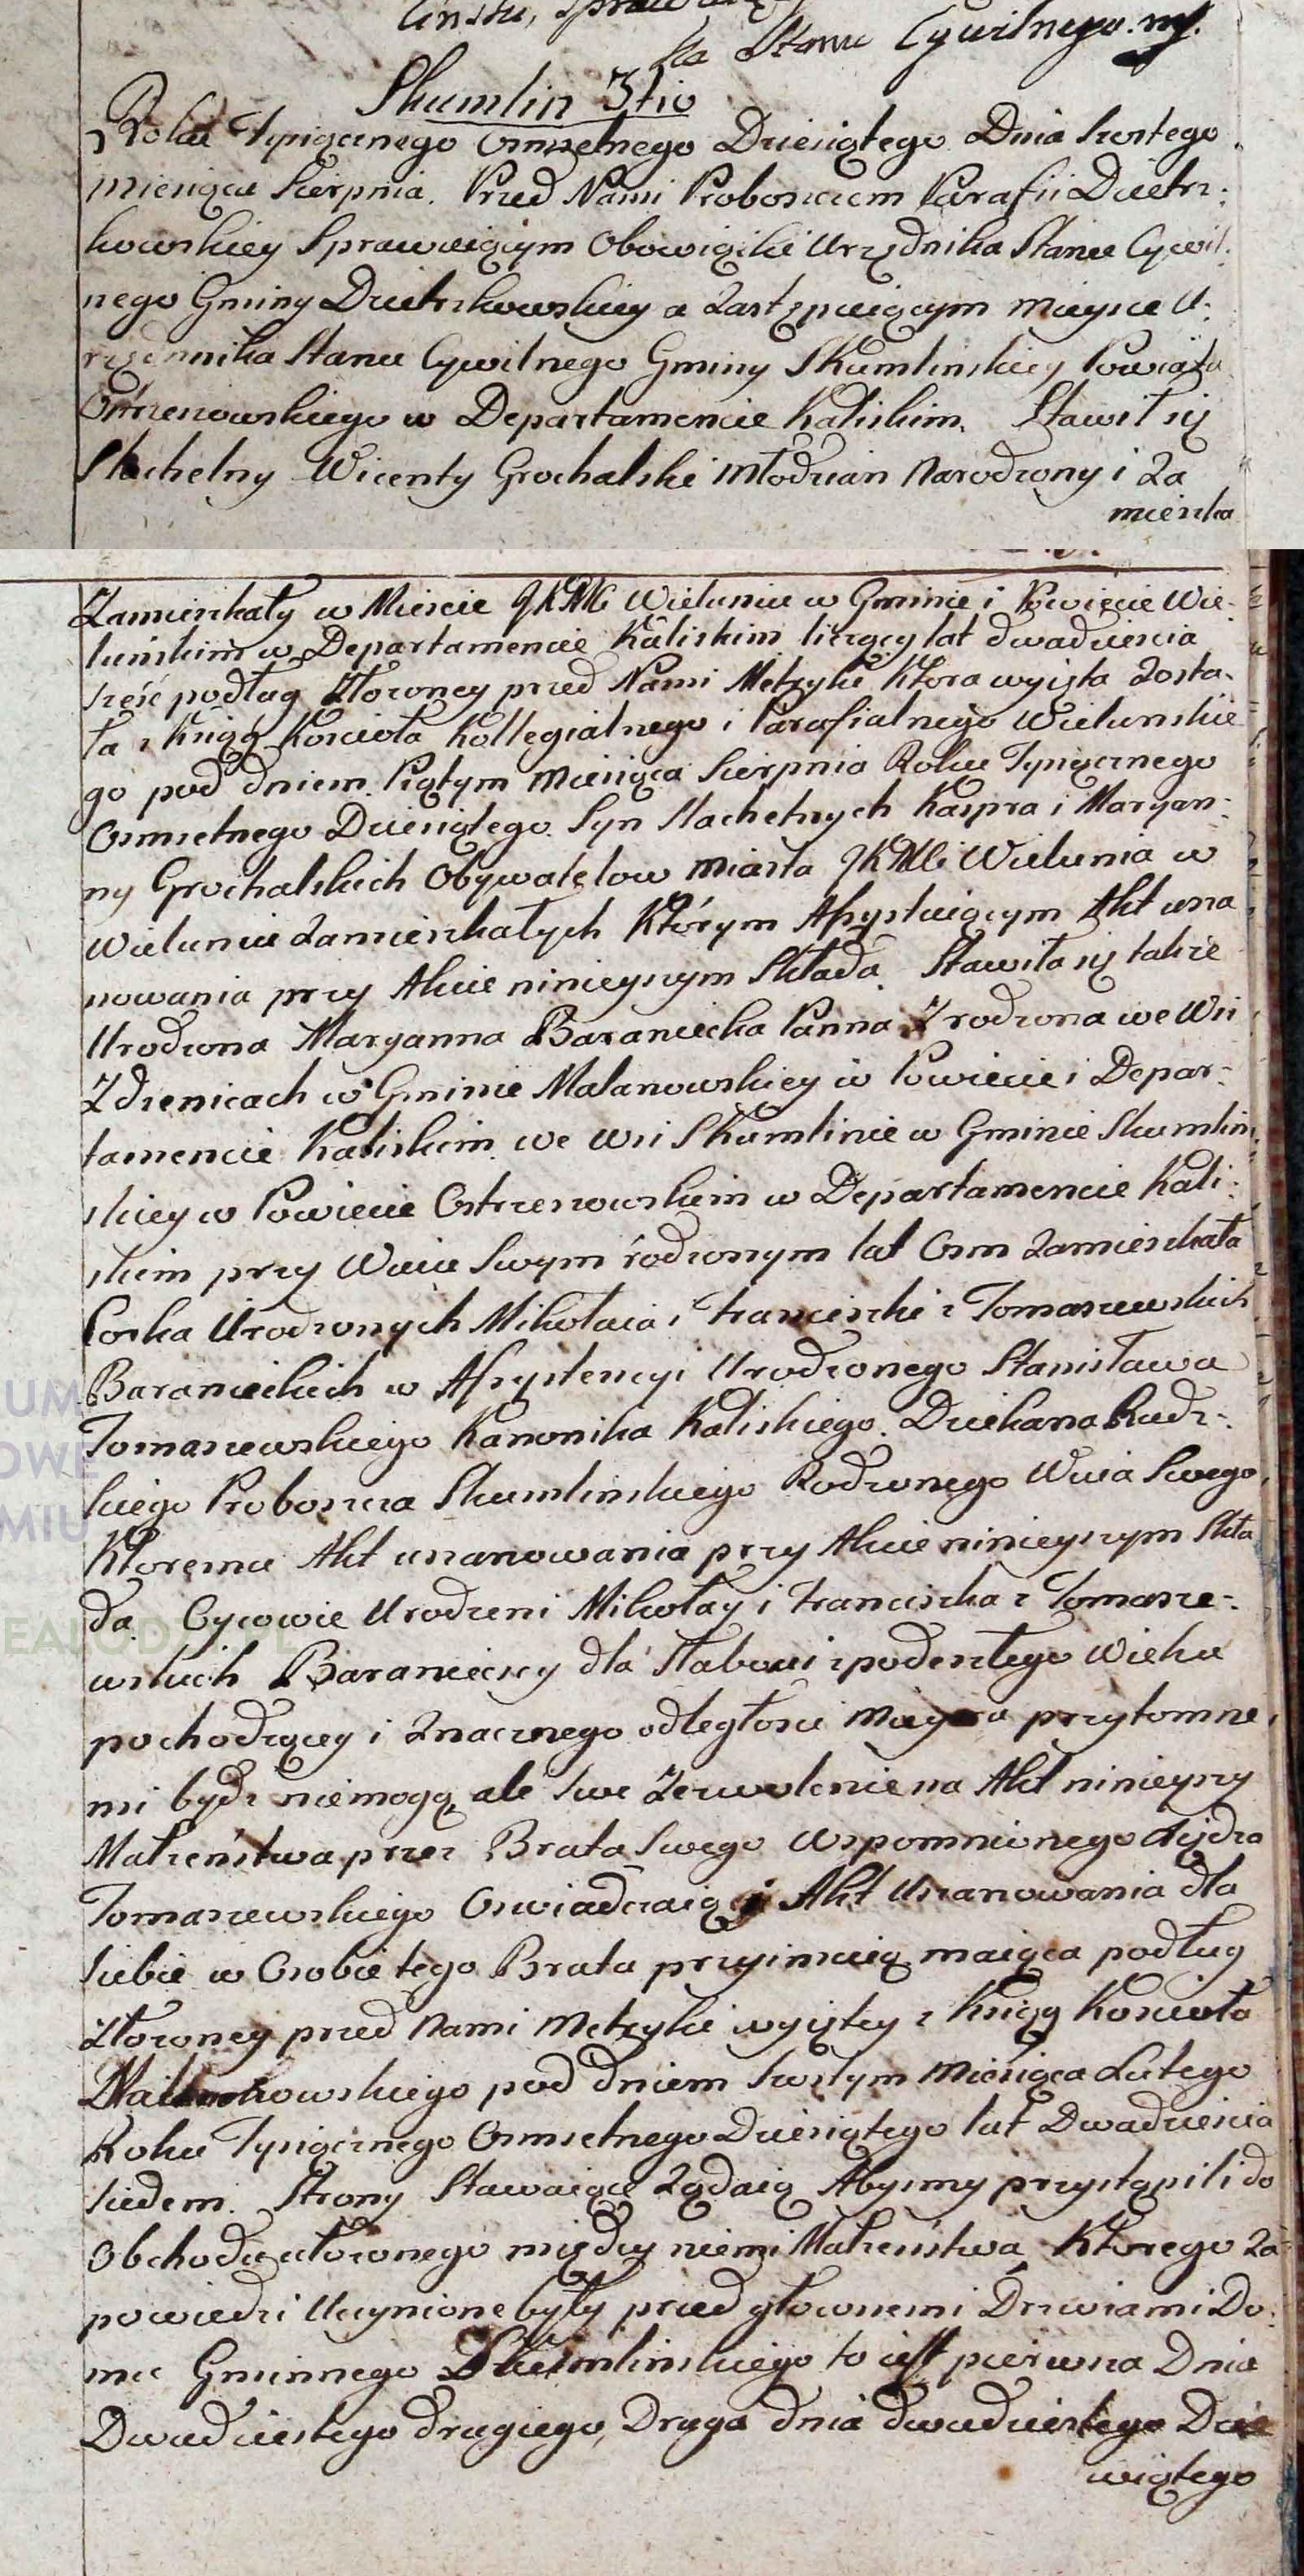 Sprawu
ka Stanu Cywilnego. mp.
Skumlin 3tio
Roku Tysiącznego Osmsetnego Dziesiątego Dnia Szostego
miesiąca Sierpnia. Przed Nami Proboszczem Parafii Dzietrz:
kowskiey Sprawuiącym Obowiązki Urzędnika Stanu Cywil:
nego Gminy Dzietrzkowskiey a Zastępuiącym mieysce U:
rzędnnika Stanu Cywilnego Gminy Skumlinskiey Powiatu
Ostrzeszowskiego w Departamencie Kaliskim. Stawił się
Slachetny Wicenty Grochalski Młodzian Narodzony i Za
mieszka
Zamieszkały w Mieście JKMC Wieluniu w Gminie i Powiecie Wie:
luńskim w Departamencie Kaliskim liczący lat dwadziescia
sześć podług złozoney przed Nami Metryki Ktora wyięta Zosta:
ła z Księg Koscioła Kollegialnego i Parafialnego Wielunskie
go pod dniem Piątym Miesiąca Sierpnia Roku Tysiącznego
Osmsetnego Dziesiątego. Syn Slachetnych Kaspra i Maryan:
ny Grochalskich Obywatelow Miasta JKMCi Wielunia w
Wieluniu Zamieszkałych Którym Assystuiącym Akt usza
nowania przy Akcie ninieyszym Składa. Stawiła się także
Urodzona Maryanna Baraniecka Panna Zrodzona we Wsi
Zdzienicach w Gminie Malanowskiey w Powiecie i Depar:
tamencie Kaliskim we wsi Skumlinie w Gminie Skumlin:
skiey w Powiecie Ostrzeszowskim w Departamencie Kali:
skim przy Wuiu Swym rodzonym lat Osm Zamieszkała
Corka Urodzonych Mikołaia i Franciszki z Tomaszewskich
Baranieckich w Assystencyi Urodzonego Stanisława
Tomaszewskiego Kanonika Kaliskiego. Dziekana Rudz:
kiego Proboszcza Skumlinskiego Rodzonego Wuia Swego,
Ktoremu Akt uszanowania przy Akcie ninieyszym Skła
da. Oycowie Urodzeni Mikołay i Franciszka z Tomasze:
wskich Baranieccy dla słabosci z podeszłego Wieku
pochodzącey i Znacznego odległosci mieysca przytomne,
mi bydz niemogą, ale swe Zezwolenie na Akt ninieyszy
Małżeństwa przez Brata Swego Wspomnionego Xiędza
Tomaszewskiego Oswiadczaią i Akt Uszanowania dla
siebie w Osobie tego Brata przyimuią, maiąca podług
złozoney przed Nami Metryki wyiętey z Księg Koscioła
Malanowskiego pod dniem Szostym Miesiąca Lutego
Roku Tysiącznego Osmsetnego Dziesiątego lat Dwadziescia
siedem. Strony Stawaiące Ządaią Abysmy przystąpili do
Obchodu ułozonego między niemi Małżeństwa, Ktorego Za
powiedzi Uczynione były przed głownemi Drzwiami Do:
mu Gminnego Skumlinskiego to iest pierwsza Dnia
Dwudziestego drugiego, Druga dnia dwudziestego Dzie
wiątego